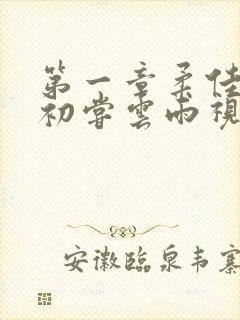 第一章柔佳
初尝雲雨視
安徽臨泉韦寨